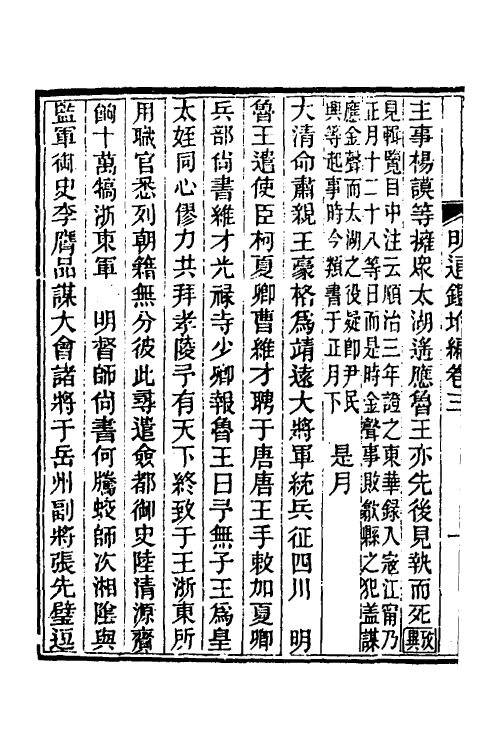 明通鑑坿編卷三
一
主事楊謨等擁衆太湖遙應魯王亦先後見執而死攷興
見輯覽目中注云順治三年證之東華録入寇江甯乃
正月十二十八等日而是時金聲事敗歙縣之犯蓋謀
應金聲而太湖之役疑卽尹民
興等起事時今類書于正月下
是月
大清命肅親王豪格爲靖遠大將軍統兵征四川　明
魯王遣使臣柯夏卿曹維才聘于唐唐王手敕加夏卿
兵部尙書維才光祿寺少卿報魯王曰予無子王爲皇
太姪同心僇力共拜孝陵予有天下終致于王浙東所
用職官悉列朝籍無分彼此尋遣僉都御史陸清源齎
餉十萬犒浙東軍　明督師尙書何騰蛟師次湘陰與
監軍御史李膺品謀大會諸將于岳州副將張先璧逗